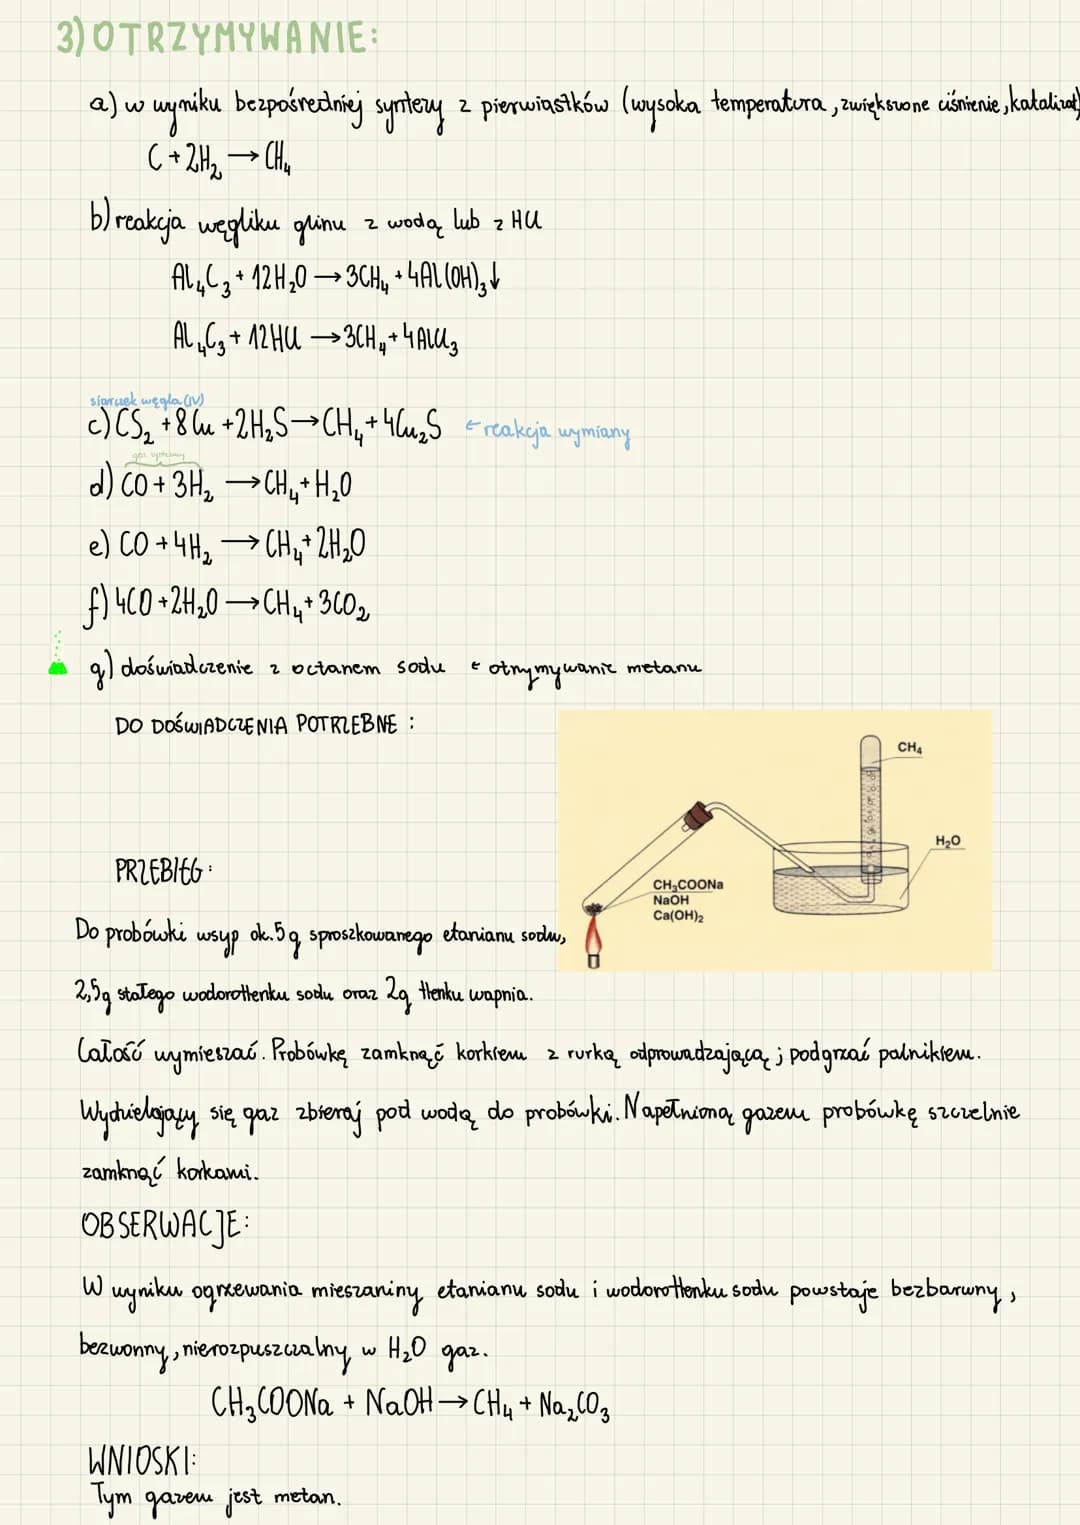 3) OTRZYMYWANIE:
a) w wyniku bezpośredniej syntezy z pierwiastków (wysoka temperatura, zwiększone ciśnienie, katalizat)
C + 2H₂ → CH₄
b) reakcja węgliku glinu z wodą lub z HCl
Al₄C₃ + 12H₂O → 3CH₄ + 4Al(OH)₃↓
Al₄C₃ + 12HCl → 3CH₄ + 4AlCl₃
siarczek węgla (IV)
c) CS₂ + 8Cu + 2H₂S → CH₄ + 4Cu₂S ← reakcja wymiany
gaz syntezowy
d) CO + 3H₂ → CH₄ + H₂O
e) CO + 4H₂ → CH₄ + 2H₂O
f) 4CO + 2H₂O → CH₄ + 3CO₂
g) doświadczenie z octanem sodu ← otrzymywanie metanu
DO DOŚWIADCZENIA POTRZEBNE :
CH₄
H₂O
CH₃COONa
NaOH
Ca(OH)₂
PRZEBIEG:
Do probówki wsyp ok. 5g sproszkowanego etanianu sodu,
2,5g stałego wodorotlenku sodu oraz 2g tlenku wapnia.
Całość wymieszać. Probówkę zamknąć korkiem z rurką odprowadzającą j podgrzać palnikiem.
Wydzielający się gaz zbieraj pod wodą do probówki. Napełnioną gazem probówkę szczelnie
zamknąć korkami.
OBSERWACJE:
W wyniku ogrzewania mieszaniny etanianu sodu i wodorotlenku sodu powstaje bezbarwny,
bezwonny, nierozpuszczalny w H₂O gaz.
CH₃COONa + NaOH → CH₄ + Na₂CO₃
WNIOSKI:
Tym gazem jest metan.